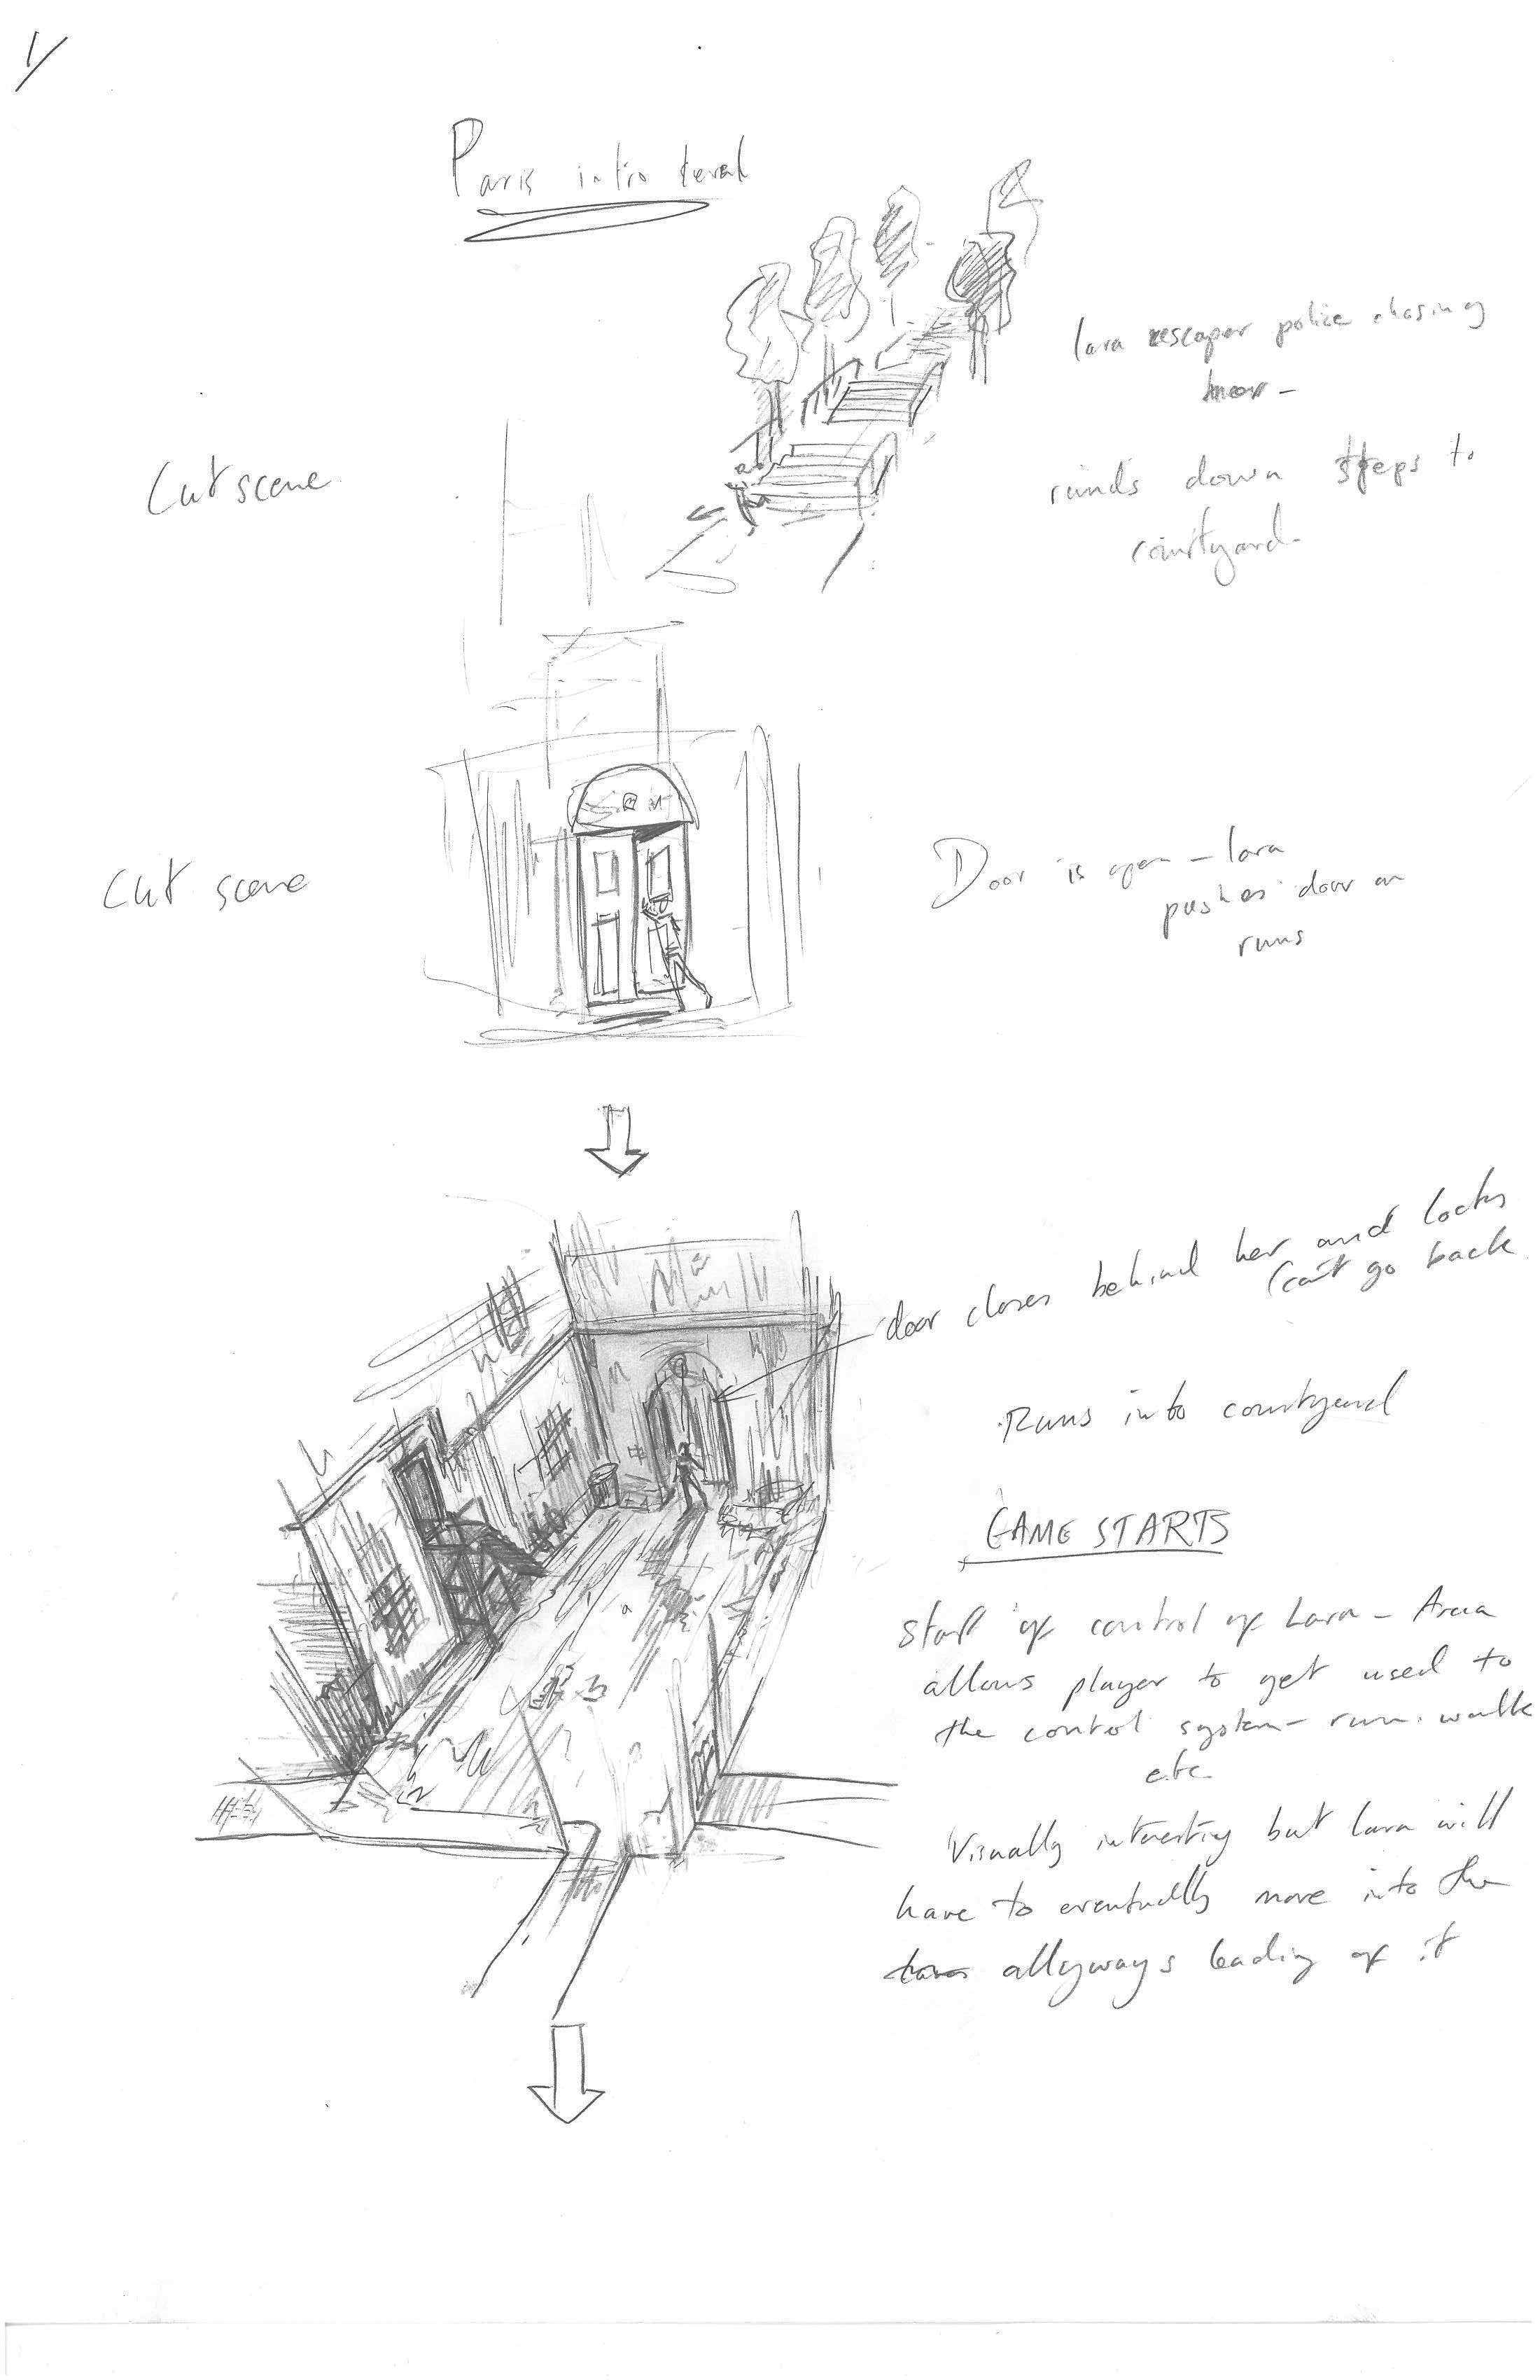 1/
Paris intro level
Cut scene
lara escapes police chasing
her -
runds down steps to
courtyard
Cut scene
Door is open - lara
pushes door an
runs
door closes behind her and locks
(can't go back
Runs into courtyard
GAME STARTS
Start of control of Lara - Area
allows player to get used to
the control system - run. walk
etc
Visually interesting but lara will
have to eventually move into the
allyways leading of it